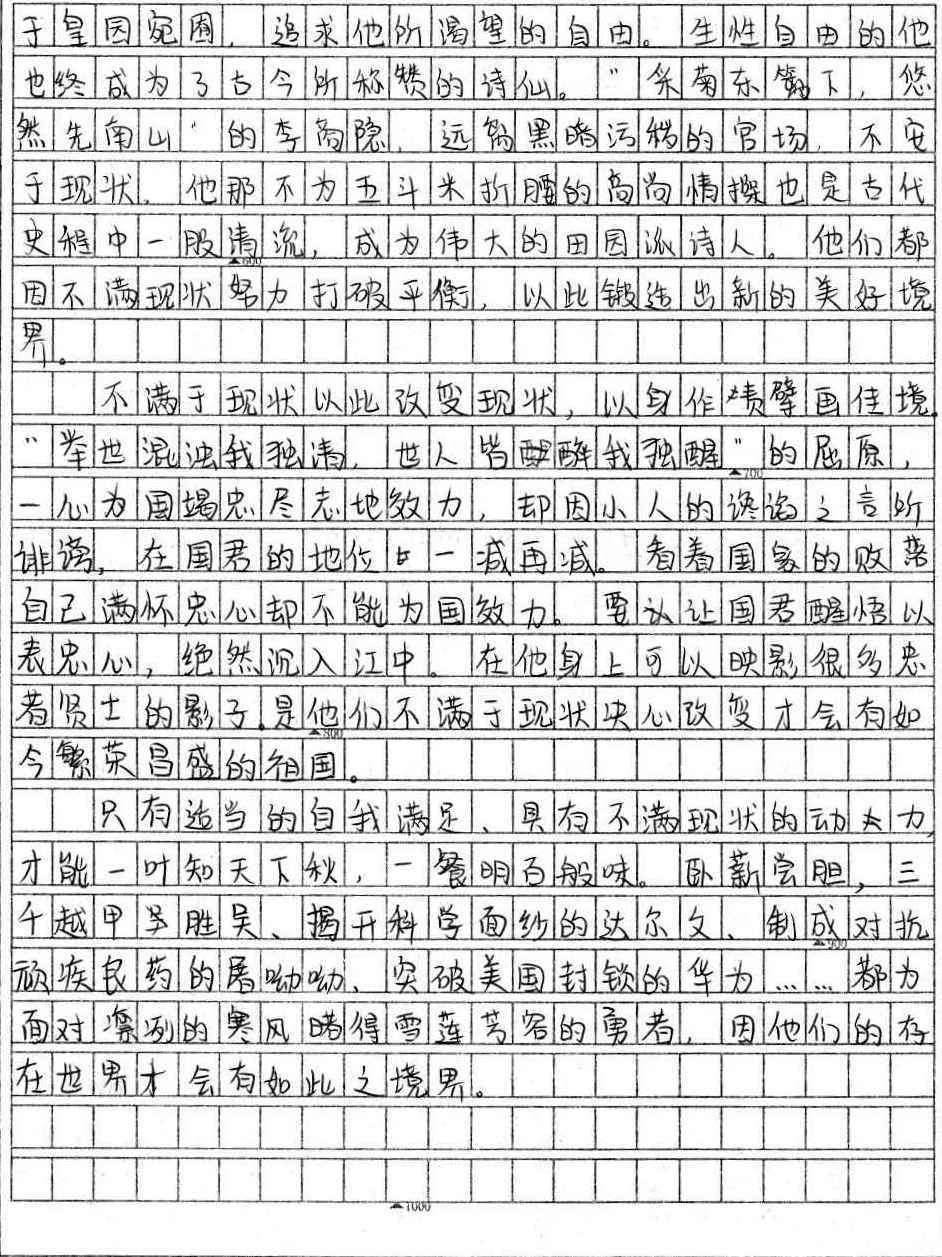 于皇园宛囿，追求他所渴望的自由。生性自由的他
也终成为了古今所称赞的诗仙。"采菊东篱下，悠
然先南山"的李商隐，远离黑暗污秽的官场，不安
于现状，他那不为五斗米折腰的高尚情操也是古代
史程中一股清流，成为伟大的田园派诗人。他们都
▲600
因不满现状努力打破平衡，以此锻造出新的美好境
界。
不满于现状以此改变现状，以身作擘画佳境。
"举世混浊我独清，世人皆醉我独醒"的屈原，
▲700
一心为国竭忠尽志地效力，却因小人的谗谄之言所
诽谤，在国君的地位一减再减。看着国家的败落
自己满怀忠心却不能为国效力。要以让国君醒悟以
表忠心，绝然沉入江中。在他身上可以映影很多忠
者贤士的影子。是他们不满于现状决心改变才会有如
▲800
今繁荣昌盛的祖国。
只有适当的自我满足、具有不满现状的动力，
才能一叶知天下秋，一餐明百般味。卧薪尝胆，三
千越甲吴胜吴、揭开科学面纱的达尔文、制成对抗
▲900
顽疾良药的屠呦呦、突破美国封锁的华为……都为
面对凛冽的寒风睹得雪莲芳容的勇者，因他们的存
在世界才会有如此之境界。
▲1000